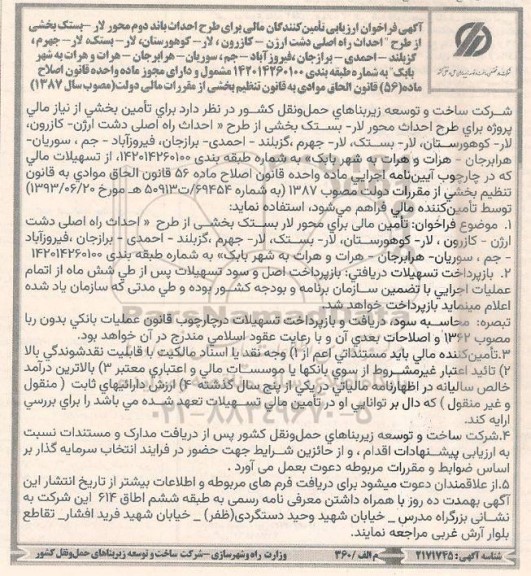 آگهی فراخوان ارزیابی تأمین کنندگان مالی برای طرح احداث باند دوم محور لار -بستک بخشی
از طرح " احداث راه اصلی دشت ارژن - کازرون ، لار- کوهورستان، لار- بستک، لار- جهرم ،
گزبلند - احمدی - برازجان ،فیروزآباد -جم ، سوریان - هرابرجان - هرات و هرات به شهر
بابک" به شماره طبقه بندی ۱۴۲۰۱۴۲۶۰۱۰۰ مشمول و دارای مجوز ماده واحده قانون اصلاح
ماده(۵۶) قانون الحاق موادی به قانون تنظیم بخشی از مقررات مالی دولت(مصوب سال ۱۳۸۷)
شرکت ساخت و توسعه زیربناهای حمل‌ونقل کشور در نظر دارد برای تأمین بخشی از نیاز مالی
پروژه برای طرح احداث محور لار- بستک بخشی از طرح « احداث راه اصلی دشت ارژن- کازرون،
لار- کوهورستان، لار- بستک، لار- جهرم ،گزبلند - احمدی- برازجان، فیروزآباد - جم ، سوریان-
هرابرجان - هرات و هرات به شهر بابک» به شماره طبقه بندی ۱۴۲۰۱۴۲۶۰۱۰۰، از تسهیلات مالی
که در چارچوب آیین‌نامه اجرایی ماده واحده قانون اصلاح ماده ۵۶ قانون الحاق موادی به قانون
تنظیم بخشی از مقررات دولت مصوب ۱۳۸۷ (به شماره ۶۹۴۵۴/ت۵۰۹۱۳ هـ مورخ ۱۳۹۳/۰۶/۲۰)
توسط تأمین‌کننده مالی فراهم می‌شود، استفاده نماید:
۱. موضوع فراخوان: تأمین مالی برای محور لار بستک بخشی از طرح « احداث راه اصلی دشت
ارژن - کازرون ، لار- کوهورستان، لار- بستک، لار- جهرم ،گزبلند - احمدی - برازجان ،فیروزآباد
- جم ، سوریان- هرابرجان - هرات و هرات به شهر بابک» به شماره طبقه بندی ۱۴۲۰۱۴۲۶۰۱۰۰
۲. بازپرداخت تسهیلات دریافتی: بازپرداخت اصل و سود تسهیلات پس از طی شش ماه از اتمام
عملیات اجرایی با تضمین سازمان برنامه و بودجه کشور بوده و طی مدتی که سازمان یاد شده
اعلام مینماید بازپرداخت خواهد شد.
تبصره: محاسبه سود، دریافت و بازپرداخت تسهیلات درچارچوب قانون عملیات بانکی بدون ربا
مصوب ۱۳۶۲ و اصلاحات بعدی آن و با رعایت عقود اسلامی مندرج در آن خواهد بود.
۳.تأمین‌کننده مالی باید مستنداتی اعم از ۱) وجه نقد یا اسناد مالکیت با قابلیت نقدشوندگی بالا
۲) تائید اعتبار غیرمشروط از سوی بانکها یا موسسات مالی و اعتباری معتبر ۳) بالاترین درآمد
خالص سالیانه در اظهارنامه مالیاتی در یکی از پنج سال گذشته ۴) ارزش دارائیهای ثابت ( منقول
و غیر منقول ) که دال بر توانایی او در تأمین مالی تسهیلات تعهد شده می باشد را برای بررسی
ارایه کند.
۴.شرکت ساخت و توسعه زیربناهای حمل‌ونقل کشور پس از دریافت مدارک و مستندات نسبت
به ارزیابی پیشنهادات اقدام ، و از حائزین شرایط جهت حضور در فرایند انتخاب سرمایه گذار بر
اساس ضوابط و مقررات مربوطه دعوت بعمل می آورد .
۵.از علاقمندان دعوت میشود برای دریافت فرم های مربوطه و اطلاعات بیشتر از تاریخ انتشار این
آگهی بهمدت ده روز با همراه داشتن معرفی نامه رسمی به طبقه ششم اطاق ۶۱۴ این شرکت به
نشانی بزرگراه مدرس _ خیابان شهید وحید دستگردی(ظفر) _ خیابان شهید فرید افشار_ تقاطع
بلوار آرش غربی مراجعه نمایند.
شناسه آگهی: ۲۱۷۱۷۴۵ م الف /۳۶۰ وزارت راه وشهرسازی -شرکت ساخت و توسعه زیربناهای حمل‌ونقل کشور
ParsNamadData
۰۲۱-۸۸۳۴۹۶۷۰-۵